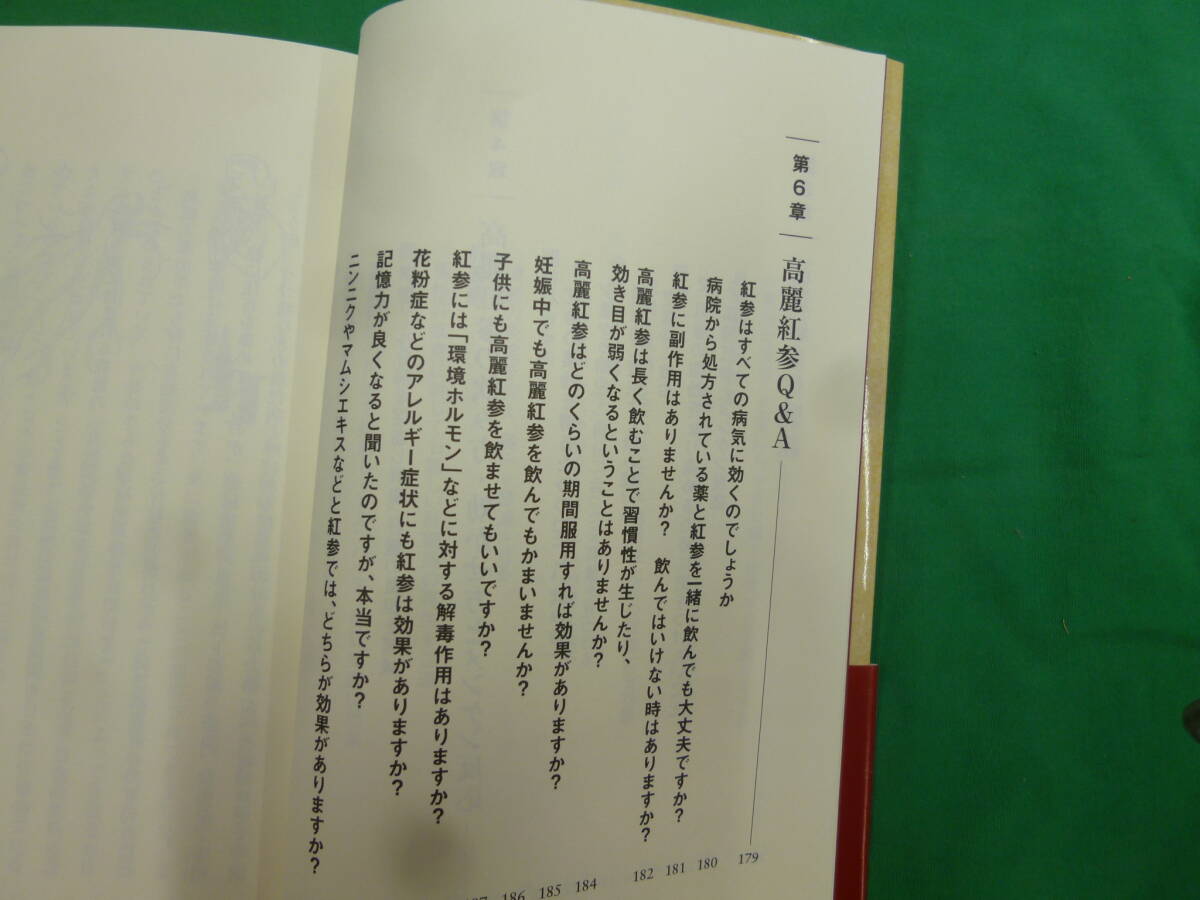 第6章
高麗紅参Q&A
179
紅参はすべての病気に効くのでしょうか
180
病院から処方されている薬と紅参を一緒に飲んでも大丈夫ですか?
181
紅参に副作用はありませんか? 飲んではいけない時はありますか?
182
高麗紅参は長く飲むことで習慣性が生じたり、
効き目が弱くなるということはありませんか?
184
高麗紅参はどのくらいの期間服用すれば効果がありますか?
185
妊娠中でも高麗紅参を飲んでもかまいませんか?
186
子供にも高麗紅参を飲ませてもいいですか?
紅参には「環境ホルモン」などに対する解毒作用はありますか?
花粉症などのアレルギー症状にも紅参は効果がありますか?
記憶力が良くなると聞いたのですが、本当ですか?
ニンニクやマムシエキスなどと紅参では、どちらが効果がありますか?